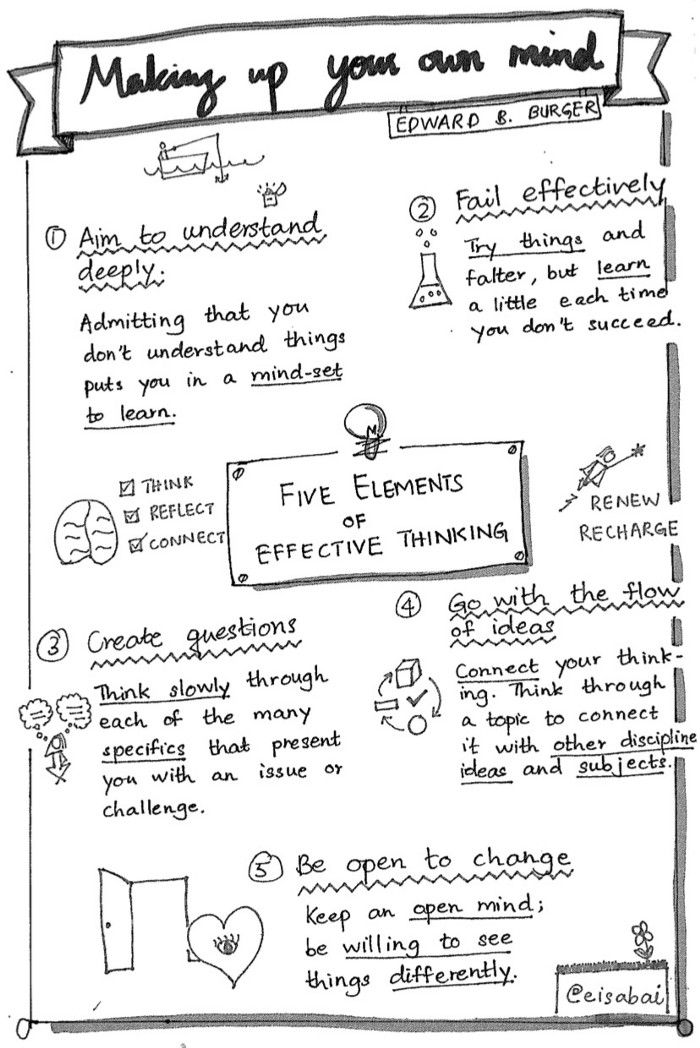 Making up your own mind
EDWARD B. BURGER
① Aim to understand
deeply.
Admitting that you
don't understand things
puts you in a mind-set
to learn.
② Fail effectively
Try things and
falter, but learn
a little each time
you don't succeed.
THINK
REFLECT
CONNECT
FIVE ELEMENTS
OF
EFFECTIVE THINKING
RENEW
RECHARGE
③ Create questions
Think slowly through
each of the many
specifics that present
you with an issue or
challenge.
④ Go with the flow
of ideas
Connect your think-
ing. Think through
a topic to connect
it with other discipline
ideas and subjects.
⑤ Be open to change
Keep an open mind;
be willing to see
things differently.
@eisabai